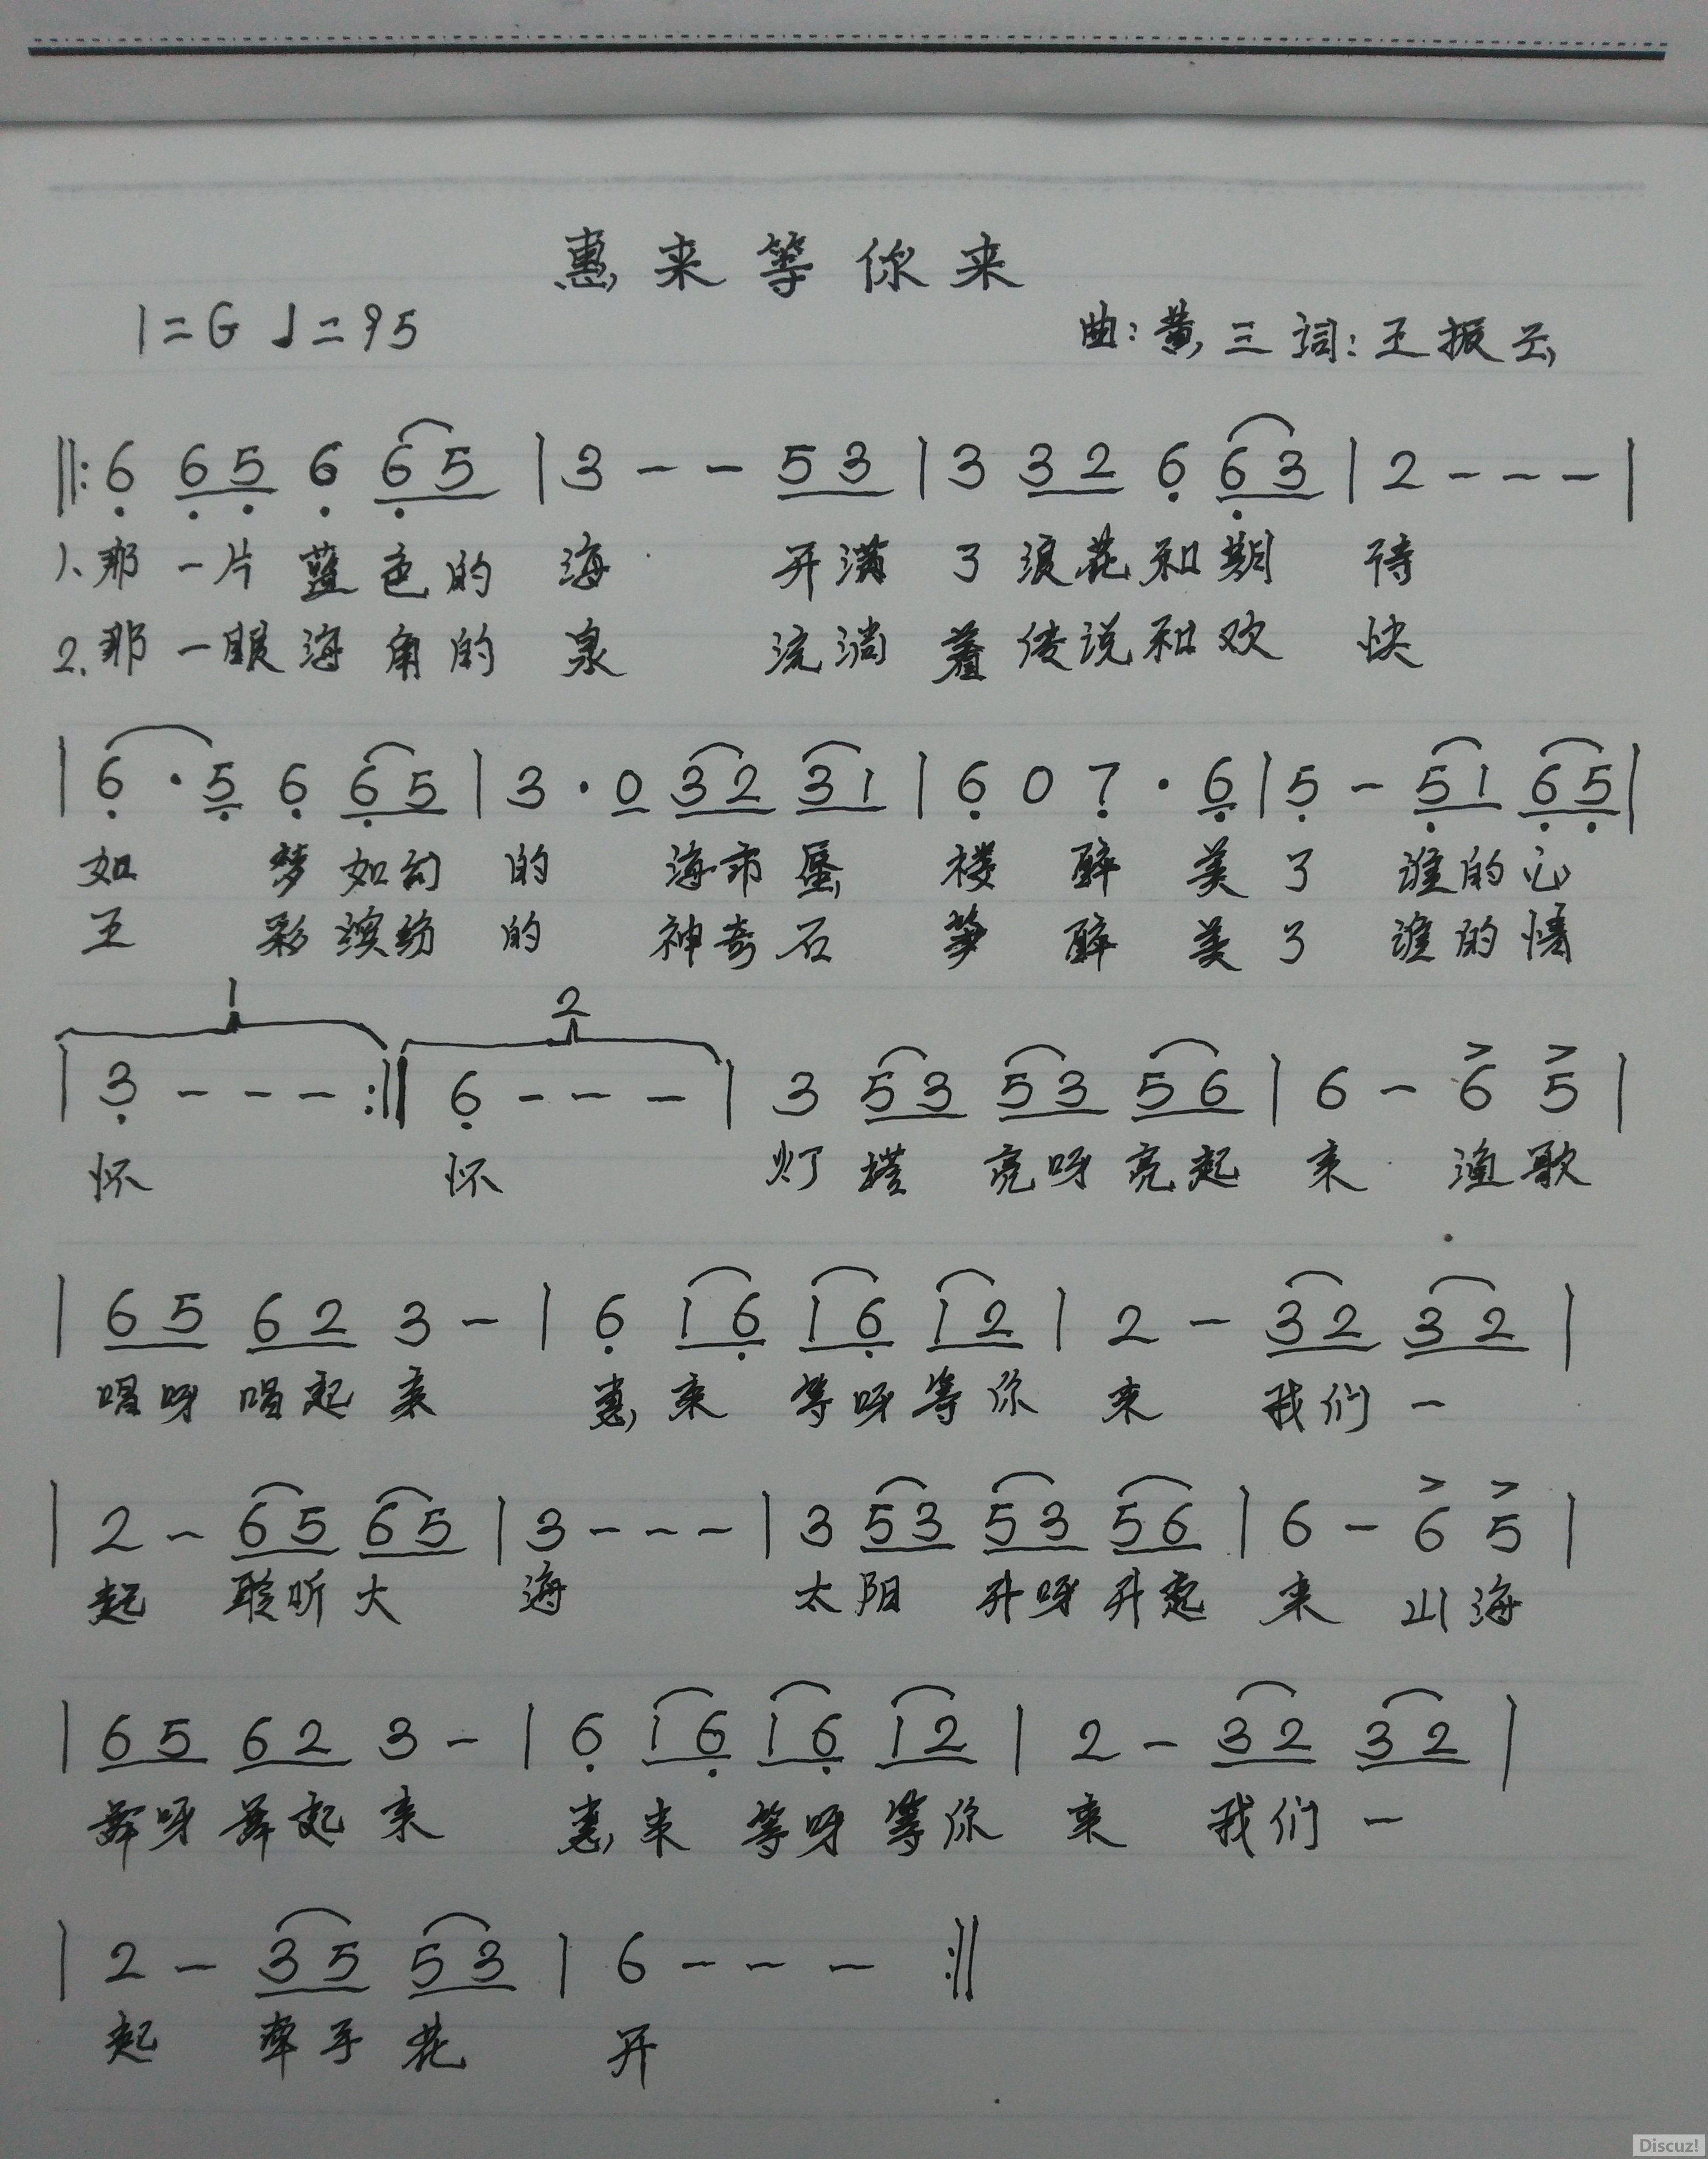 惠来等你来
1=G ♩=95 曲:黄三 词:王振云
‖: 6 65 6 65 | 3 - - 53 | 3 32 6 63 | 2 - - - |
1.那一片蓝色的海 开满了浪花和期待
2.那一眼海角的泉 流淌着传说和欢快
| 6·5 6 65 | 3·0 32 31 | 6 0 7·6 | 5 - 51 65 |
如梦如幻的海市蜃楼醉美了谁的心
五彩缤纷的神奇石笋醉美了谁的情
1 2
| 3 - - - :‖ 6 - - - | 3 53 53 56 | 6 - 6 5 |
怀 怀 灯塔亮呀亮起来 渔歌
| 65 62 3 - | 6 16 16 12 | 2 - 32 32 |
唱呀唱起来 惠来等呀等你来 我们一
| 2 - 65 65 | 3 - - - | 3 53 53 56 | 6 - 6 5 |
起 聆听大海 太阳升呀升起来 山海
| 65 62 3 - | 6 16 16 12 | 2 - 32 32 |
舞呀舞起来 惠来等呀等你来 我们一
| 2 - 35 53 | 6 - - - :‖
起 牵手花开
Discuz!